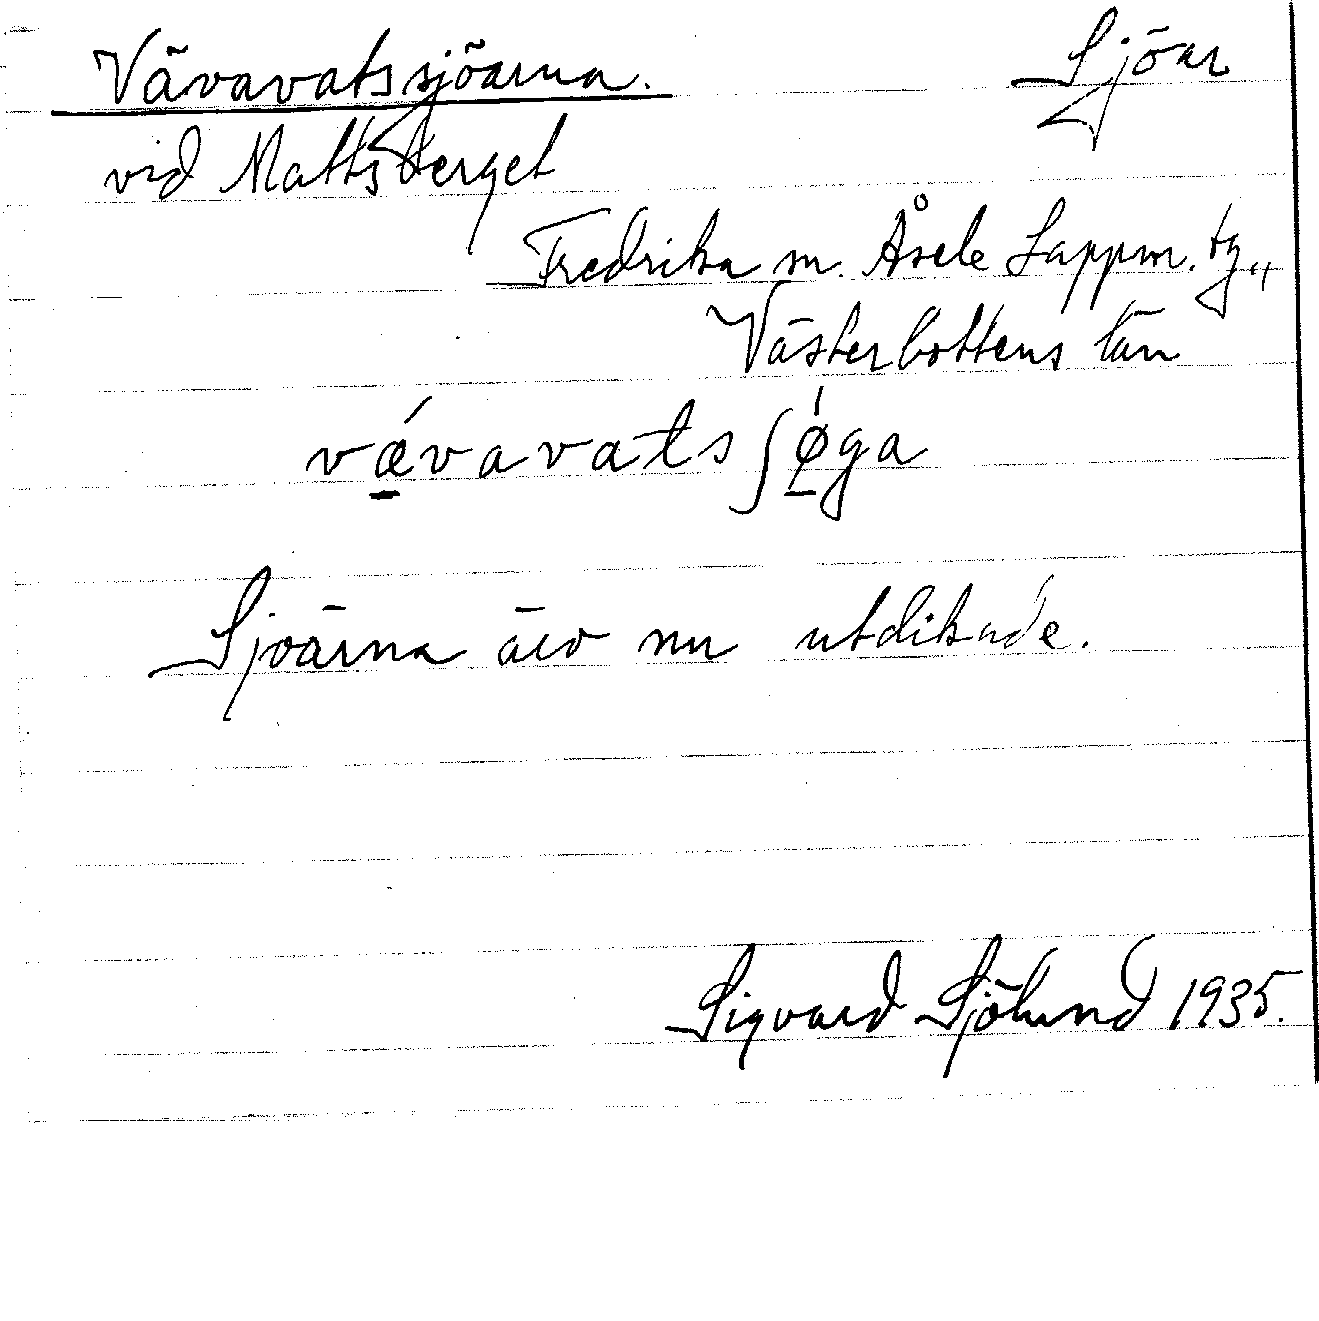 Vävavatssjöarna. Sjöar
vid Mattsberget
Fredrika sn. Åsele Lappm. tg.,
Västerbottens län
vǽvavatsʃǿga
Sjöarna äro nu utdikade.
Sigvard Sjölund 1935.